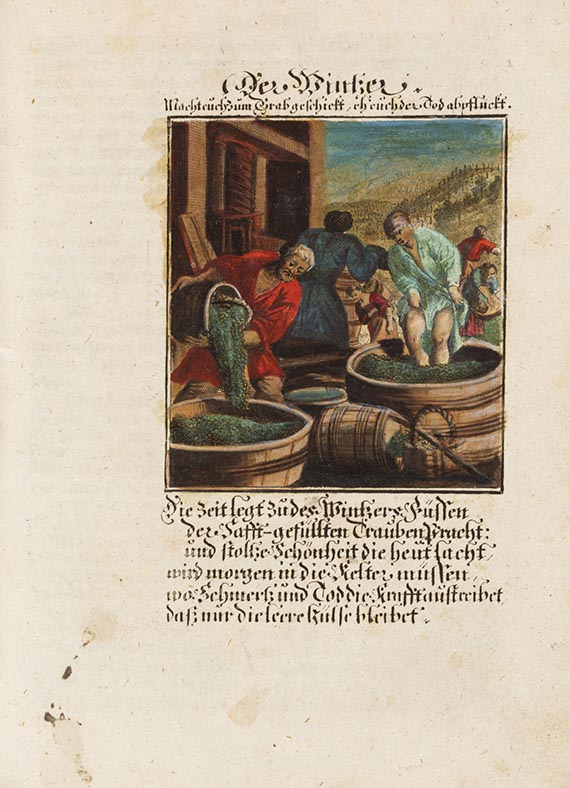 Der Wintzer.
Macht euch zum Grab geschickt, eh euch der Tod abpflückt.
Die Zeit legt zu des Wintzers Füssen
der Safft-gefüllten Trauben Pracht:
und stoltze Schönheit die heut lacht,
wird morgen in die Kelter müssen,
wo Schmertz und Tod die Krafft austreibet
daß nur die leere Hülse bleibet.